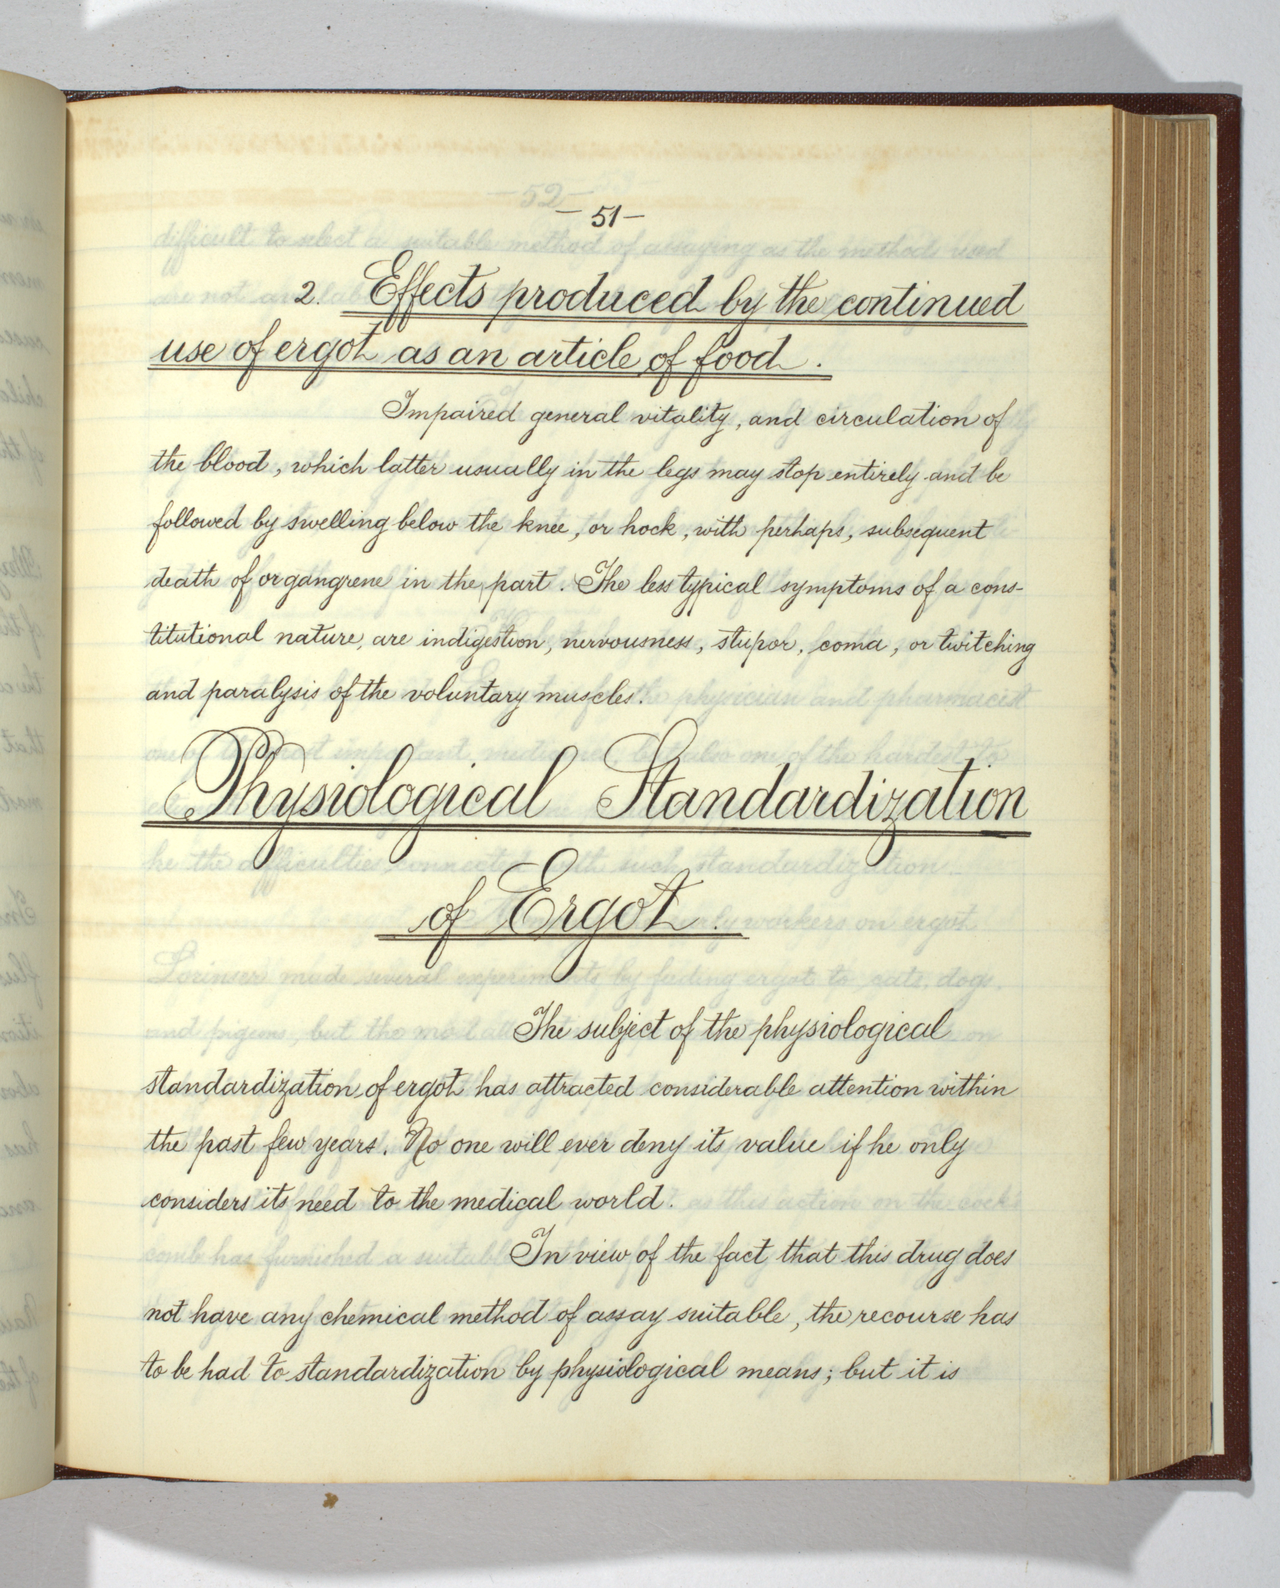 -51-
2. Effects produced by the continued
use of ergot as an article of food.
Impaired general vitality, and circulation of
the blood, which latter usually in the legs may stop entirely and be
followed by swelling below the knee, or hock, with perhaps, subsequent
death of or gangrene in the part. The less typical symptoms of a cons-
titutional nature, are indigestion, nervousness, stupor, coma, or twitching
and paralysis of the voluntary muscles.
Physiological Standardization
of Ergot.
The subject of the physiological
standardization of ergot has attracted considerable attention within
the past few years. No one will ever deny its value if he only
considers its need to the medical world.
In view of the fact that this drug does
not have any chemical method of assay suitable, the recourse has
to be had to standardization by physiological means; but it is